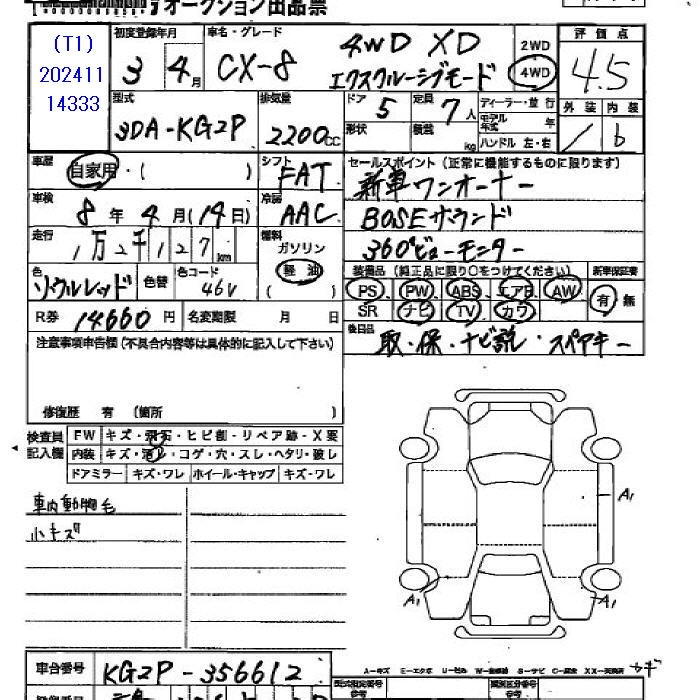 オークション出品票
(T1)
202411
14333
初度登録年月
3 4月
車名・グレード
CX-8 4WD XD
エクスクルーシブモード
2WD
4WD
評価点
4.5
型式
3DA-KG2P
排気量
2200cc
ドア 5
定員 7人
形状
積載 kg
ディーラー・並行
モデル年式 年
ハンドル 左・右
外装 内装
/ b
車歴
自家用・( )
シフト
FAT
セールスポイント(正常に機能するものに限ります)
新車ワンオーナー
BOSEサウンド
360°ビューモニター
車検
8年 4月(19日)
冷房
AAC
走行
1万2千127km
燃料
ガソリン
軽油
( )
色
ソウルレッド
色替
色コード
46V
装備品(純正品に限り○をつけてください)
PS PW ABS エアB AW
SR ナビ TV カワ
新車保証書
有・無
R券 14660円
名変期限 月 日
後日品
取・保・ナビ説・スペアキー
注意事項申告欄(不具合内容等は具体的に記入して下さい)
修復歴 有(箇所 )
検査員記入欄
FW キズ・飛石・ヒビ割・リペア跡・X要
内装 キズ・汚れ・コゲ・穴・スレ・ヘタリ・破レ
ドアミラー キズ・ワレ ホイール・キャップ キズ・ワレ
車内動物毛
小キズ
A1
A1
A1
車台番号
KG2P-356612
A-キズ E-エクボ U-凹み W-補修跡 S-サビ C-腐食 XX-交換済
カギ
型式指定番号
類別区分番号